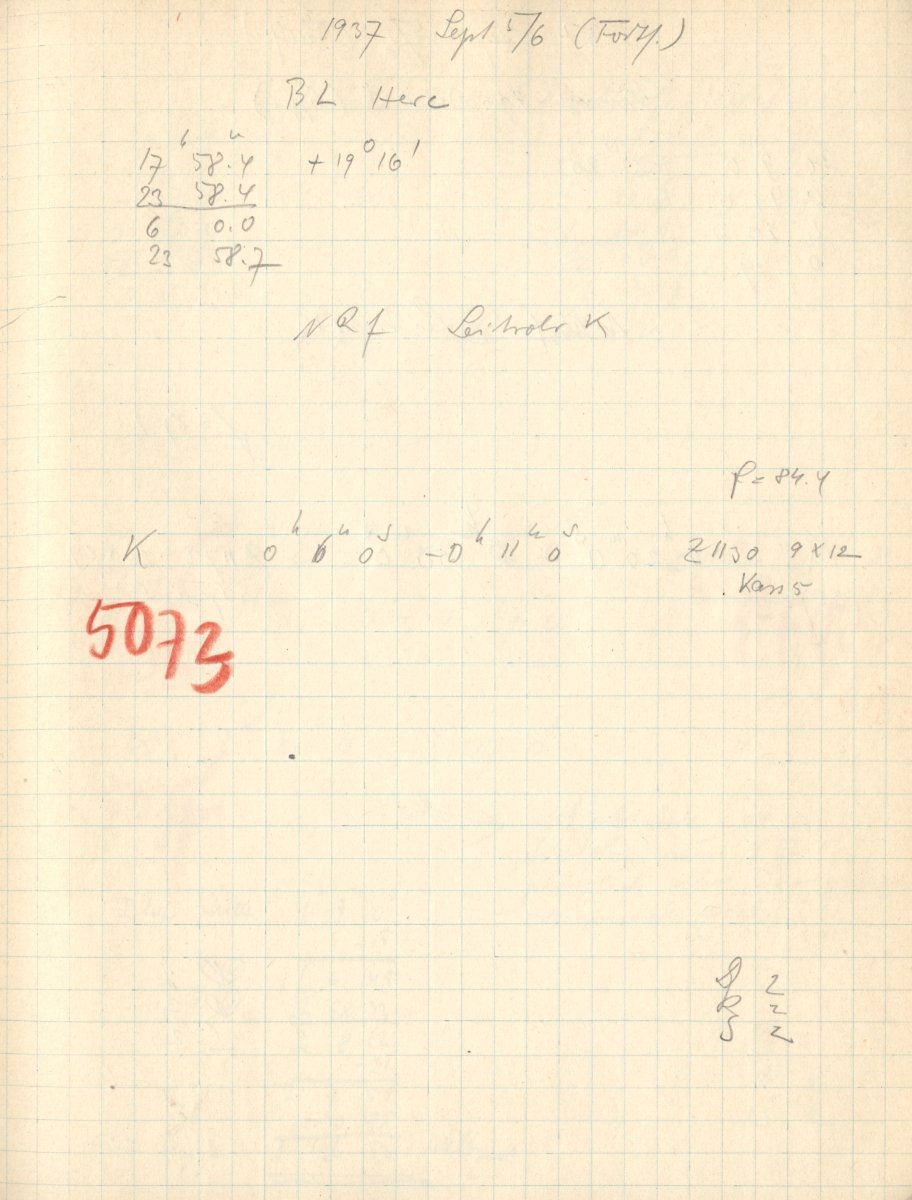 1937 Sept 5/6 (Forts.)
BL Herc
17ʰ 58.4ᵐ + 19° 16'
23 58.4
6 0.0
23 58.7
f = 84.4
K 0ʰ 6ᵐ 0ˢ – 0ʰ 11ᵐ 0ˢ Z1130 9 x 12
Kass 5
5073
2
R 2
S 2